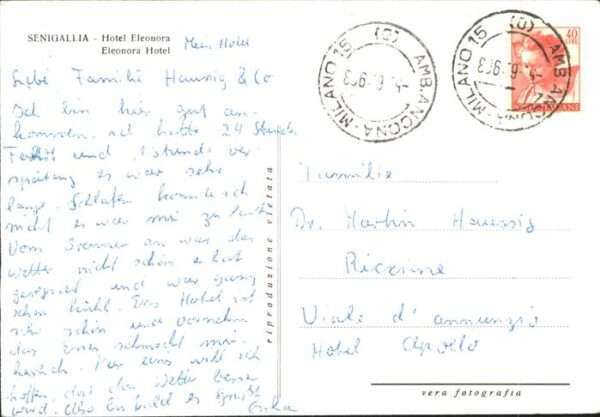 SENIGALLIA - Hotel Eleonora
Eleonora Hotel
Mein Hotel
Liebe Familie Haussig & Co
Ich bin hier gut an-
kommen, ich hatte 24 Stunden
Fahrt und 1 stunde ver
spätung es war sehr
lange. Schlafen konnte ich
nicht es war mir zu
Vom Brenner an war das
wetter nicht schön es hat
geregnet und war ganz
schön kühl. Das Hotel ist
sehr schön und vornehm
das essen schmeckt mir
Nur eins will ich
hoffen, das das Wetter besser
wird. Also
Erika
riproduzione vietata
MILANO 15 (O) AMB. ANCONA
MILANO 15 (O) AMB. ANCONA
40
Familie
Dr. Martin Haussig
Riccione
Viale d'annunzio
Hotel Apollo
vera fotografia